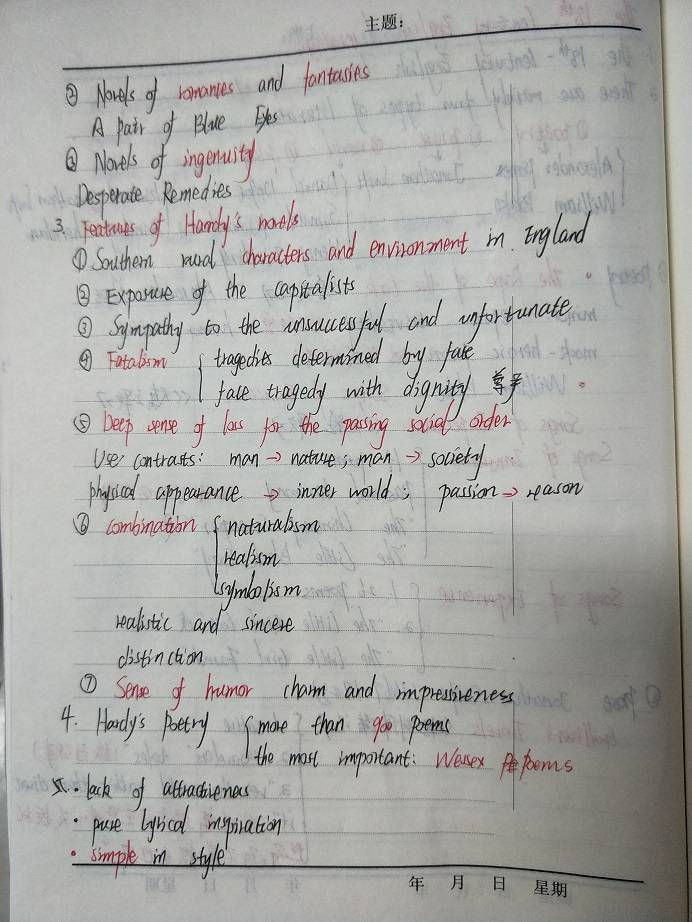 主题:
② Novels of romances and fantasies
A pair of Blue Eyes
③ Novels of ingenuity
Desperate Remedies
3. Features of Hardy's novels
① Southern rural characters and environment in England
② Exposure of the capitalists
③ Sympathy to the unsuccessful and unfortunate
④ Fatalism { tragedies determined by fate
face tragedy with dignity 尊严
⑤ Deep sense of loss for the passing social order
Use contrasts: man → nature; man → society
physical appearance → inner world; passion → reason
⑥ combination { naturalism
realism
symbolism
realistic and sincere
distinction
⑦ Sense of humor charm and impressiveness
4. Hardy's Poetry { more than 900 poems
the most important: Wessex poems
· lack of attractieness
· pure lyrical inspiration
· simple in style
年 月 日 星期